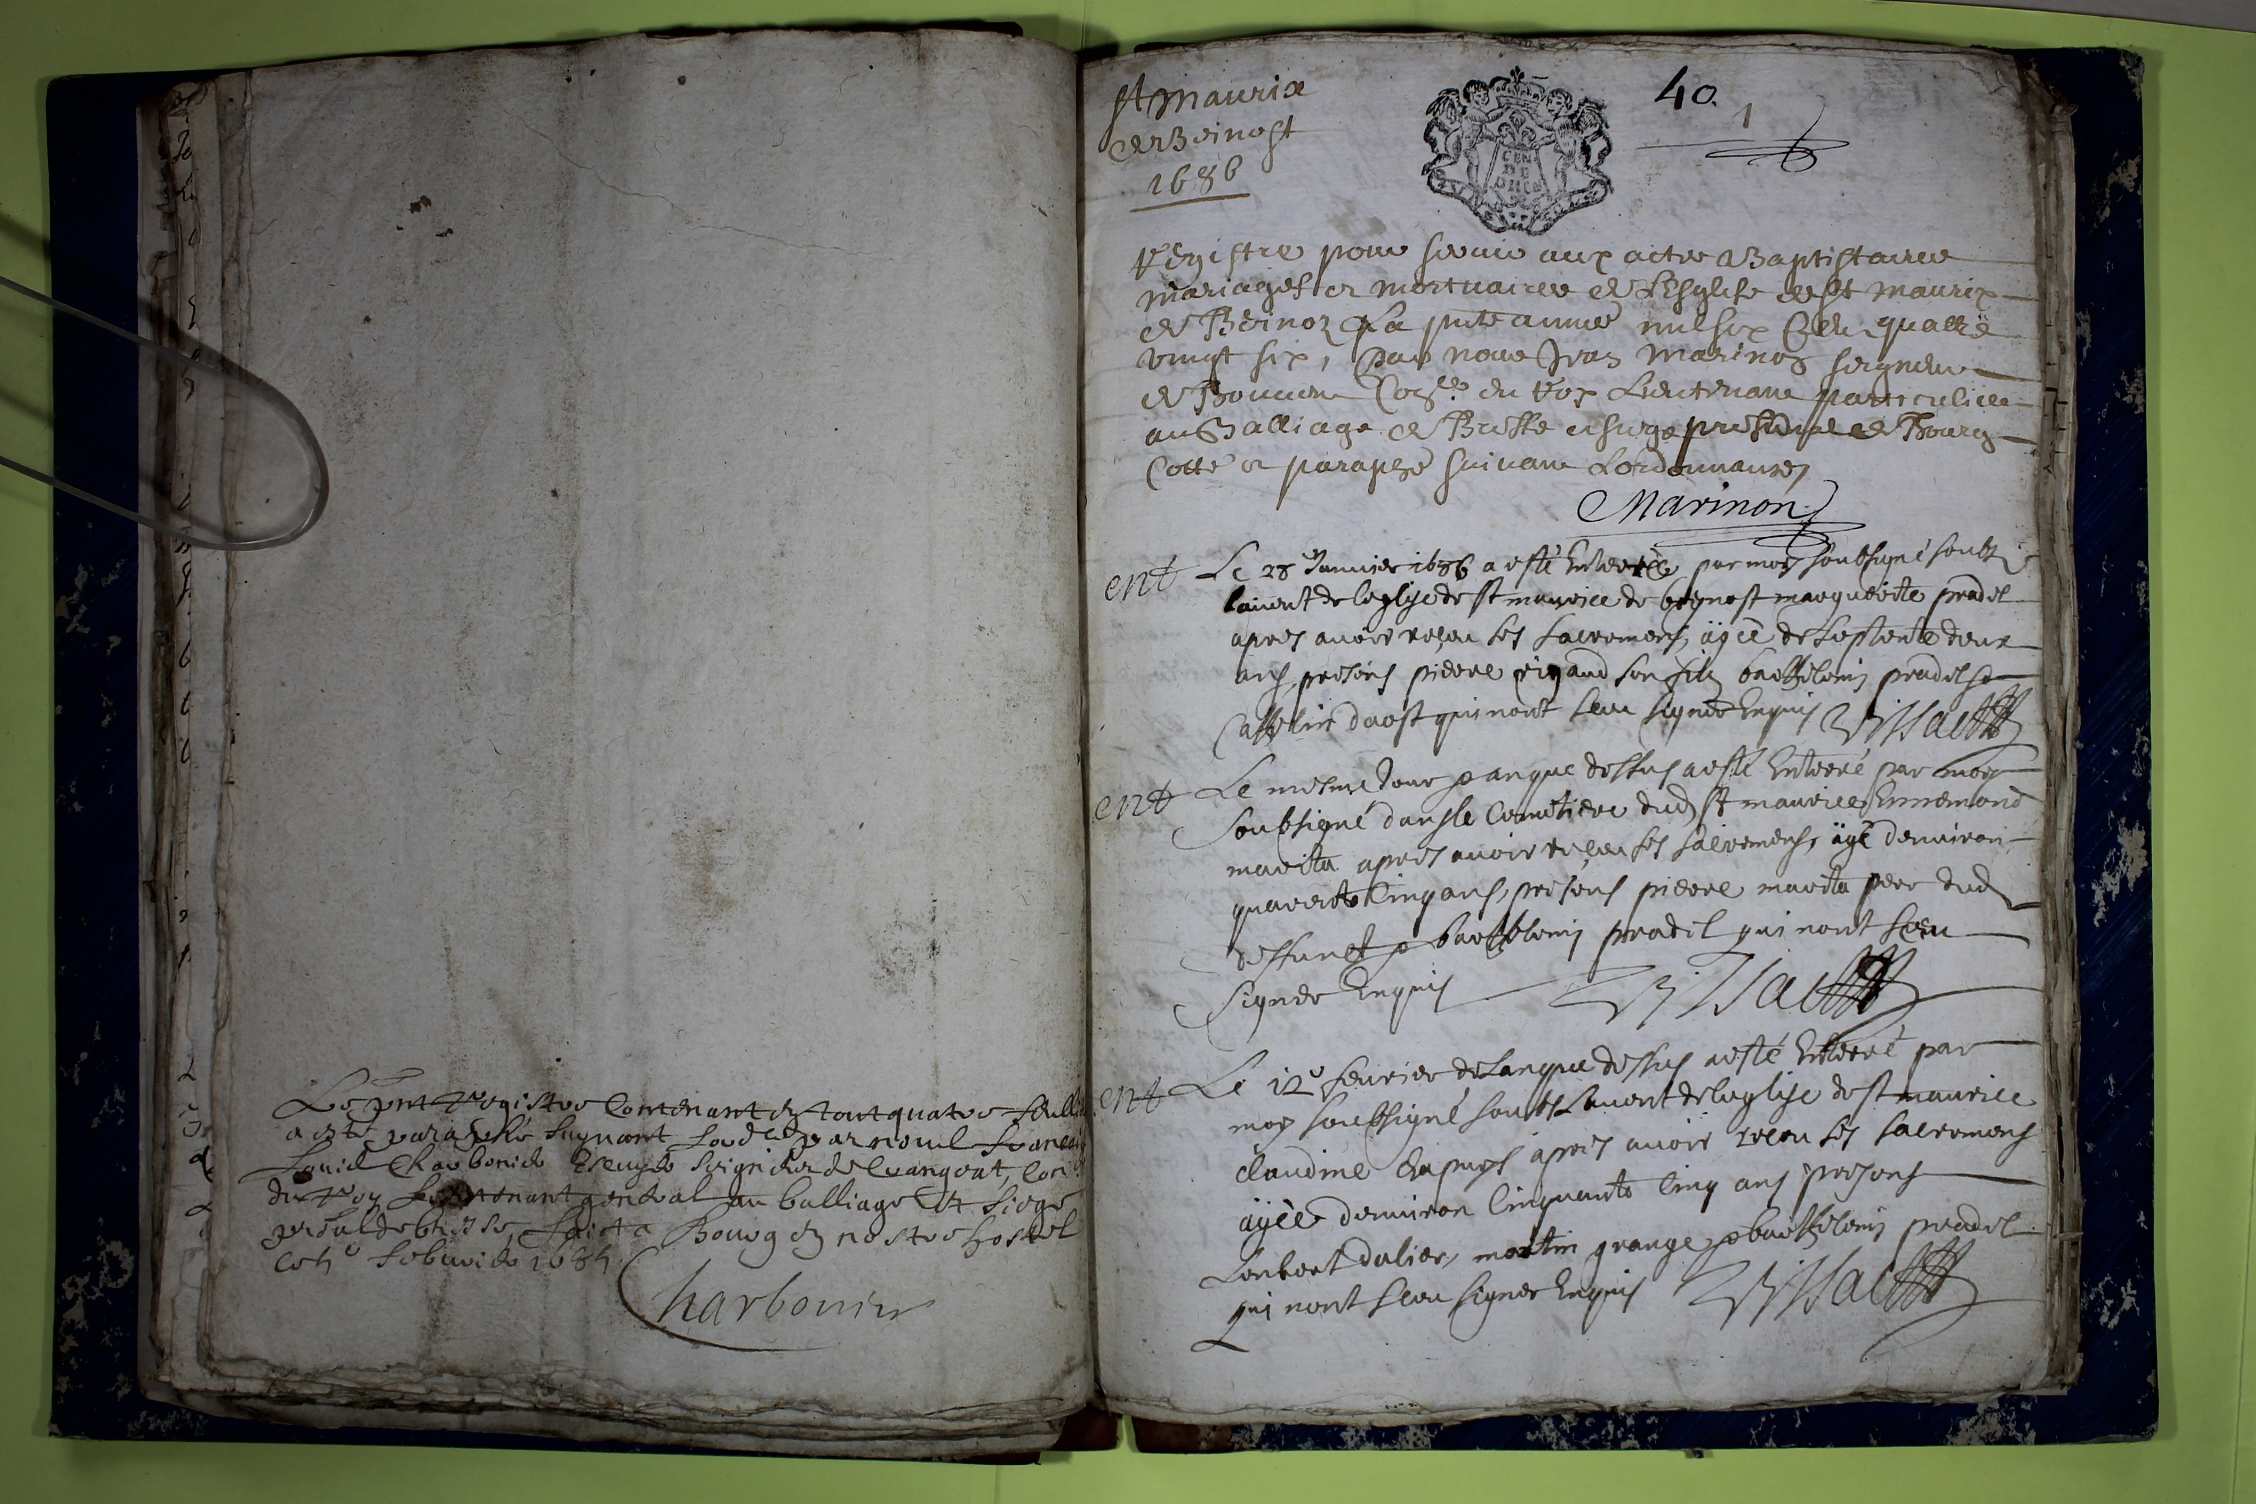 Le pnt Registre Contenant en tout quatre feullie
a esté paraphé suyuant par nous francois
Louis Charbonier Escuyer seigneur de Crangeat, Con
du Roy Lieutenant general au balliage et siege
presal de bresse, faict a Bourg en nostre hostel
le feburier 1685
Charbonier
st maurice
de Beinost
1686
40.
1
Registre pour seruir aux actes Baptistaires
mariages et mortuaires de L'Esglise de st maurix
de Beinoz La pnte annee mil six Cens quattre
vingt six, Par nous Jean Marinon seigneur
de Couer du Roy Lieutenant particulier
au Balliage de Bresse et siege presidial de Bourg
Cotté et paraphé suiuant Lordonnance
Marinon
ent Le 28 Januier 1686 a esté Enterrée par moy soubsigné soubz
lauent de leglise de st maurice de beynost marguerite pradel
apres auoir reçeu ses sacremens, âgée de septente deux
ans, presens pierre rigaud son filz barthelemy pradel et
Cattelin daost qui nont sceu signer Enquis
ent Le mesme Jour et an que dessus a esté Enterré par moy
soubsigné dans le Cemetiere dud st maurice Ennemond
marita apres auoir reçeu ses sacremens, âgé denuiron
quarente Cinq ans, presens pierre marita pere dud
deffunct et barthelemy pradel qui nont sceu
signer Enquis
ent Le 12e feurier de lan que dessus a esté Enterré par
moy soubsigné soubz Lauent de leglise de st maurice
claudine apres auoir reçeu ses sacremens
âgée denuiron Cinquante Cinq ans presens
Lonbert dalier, martin grange et barthelemy pradel
qui nont sceu signer Enquis